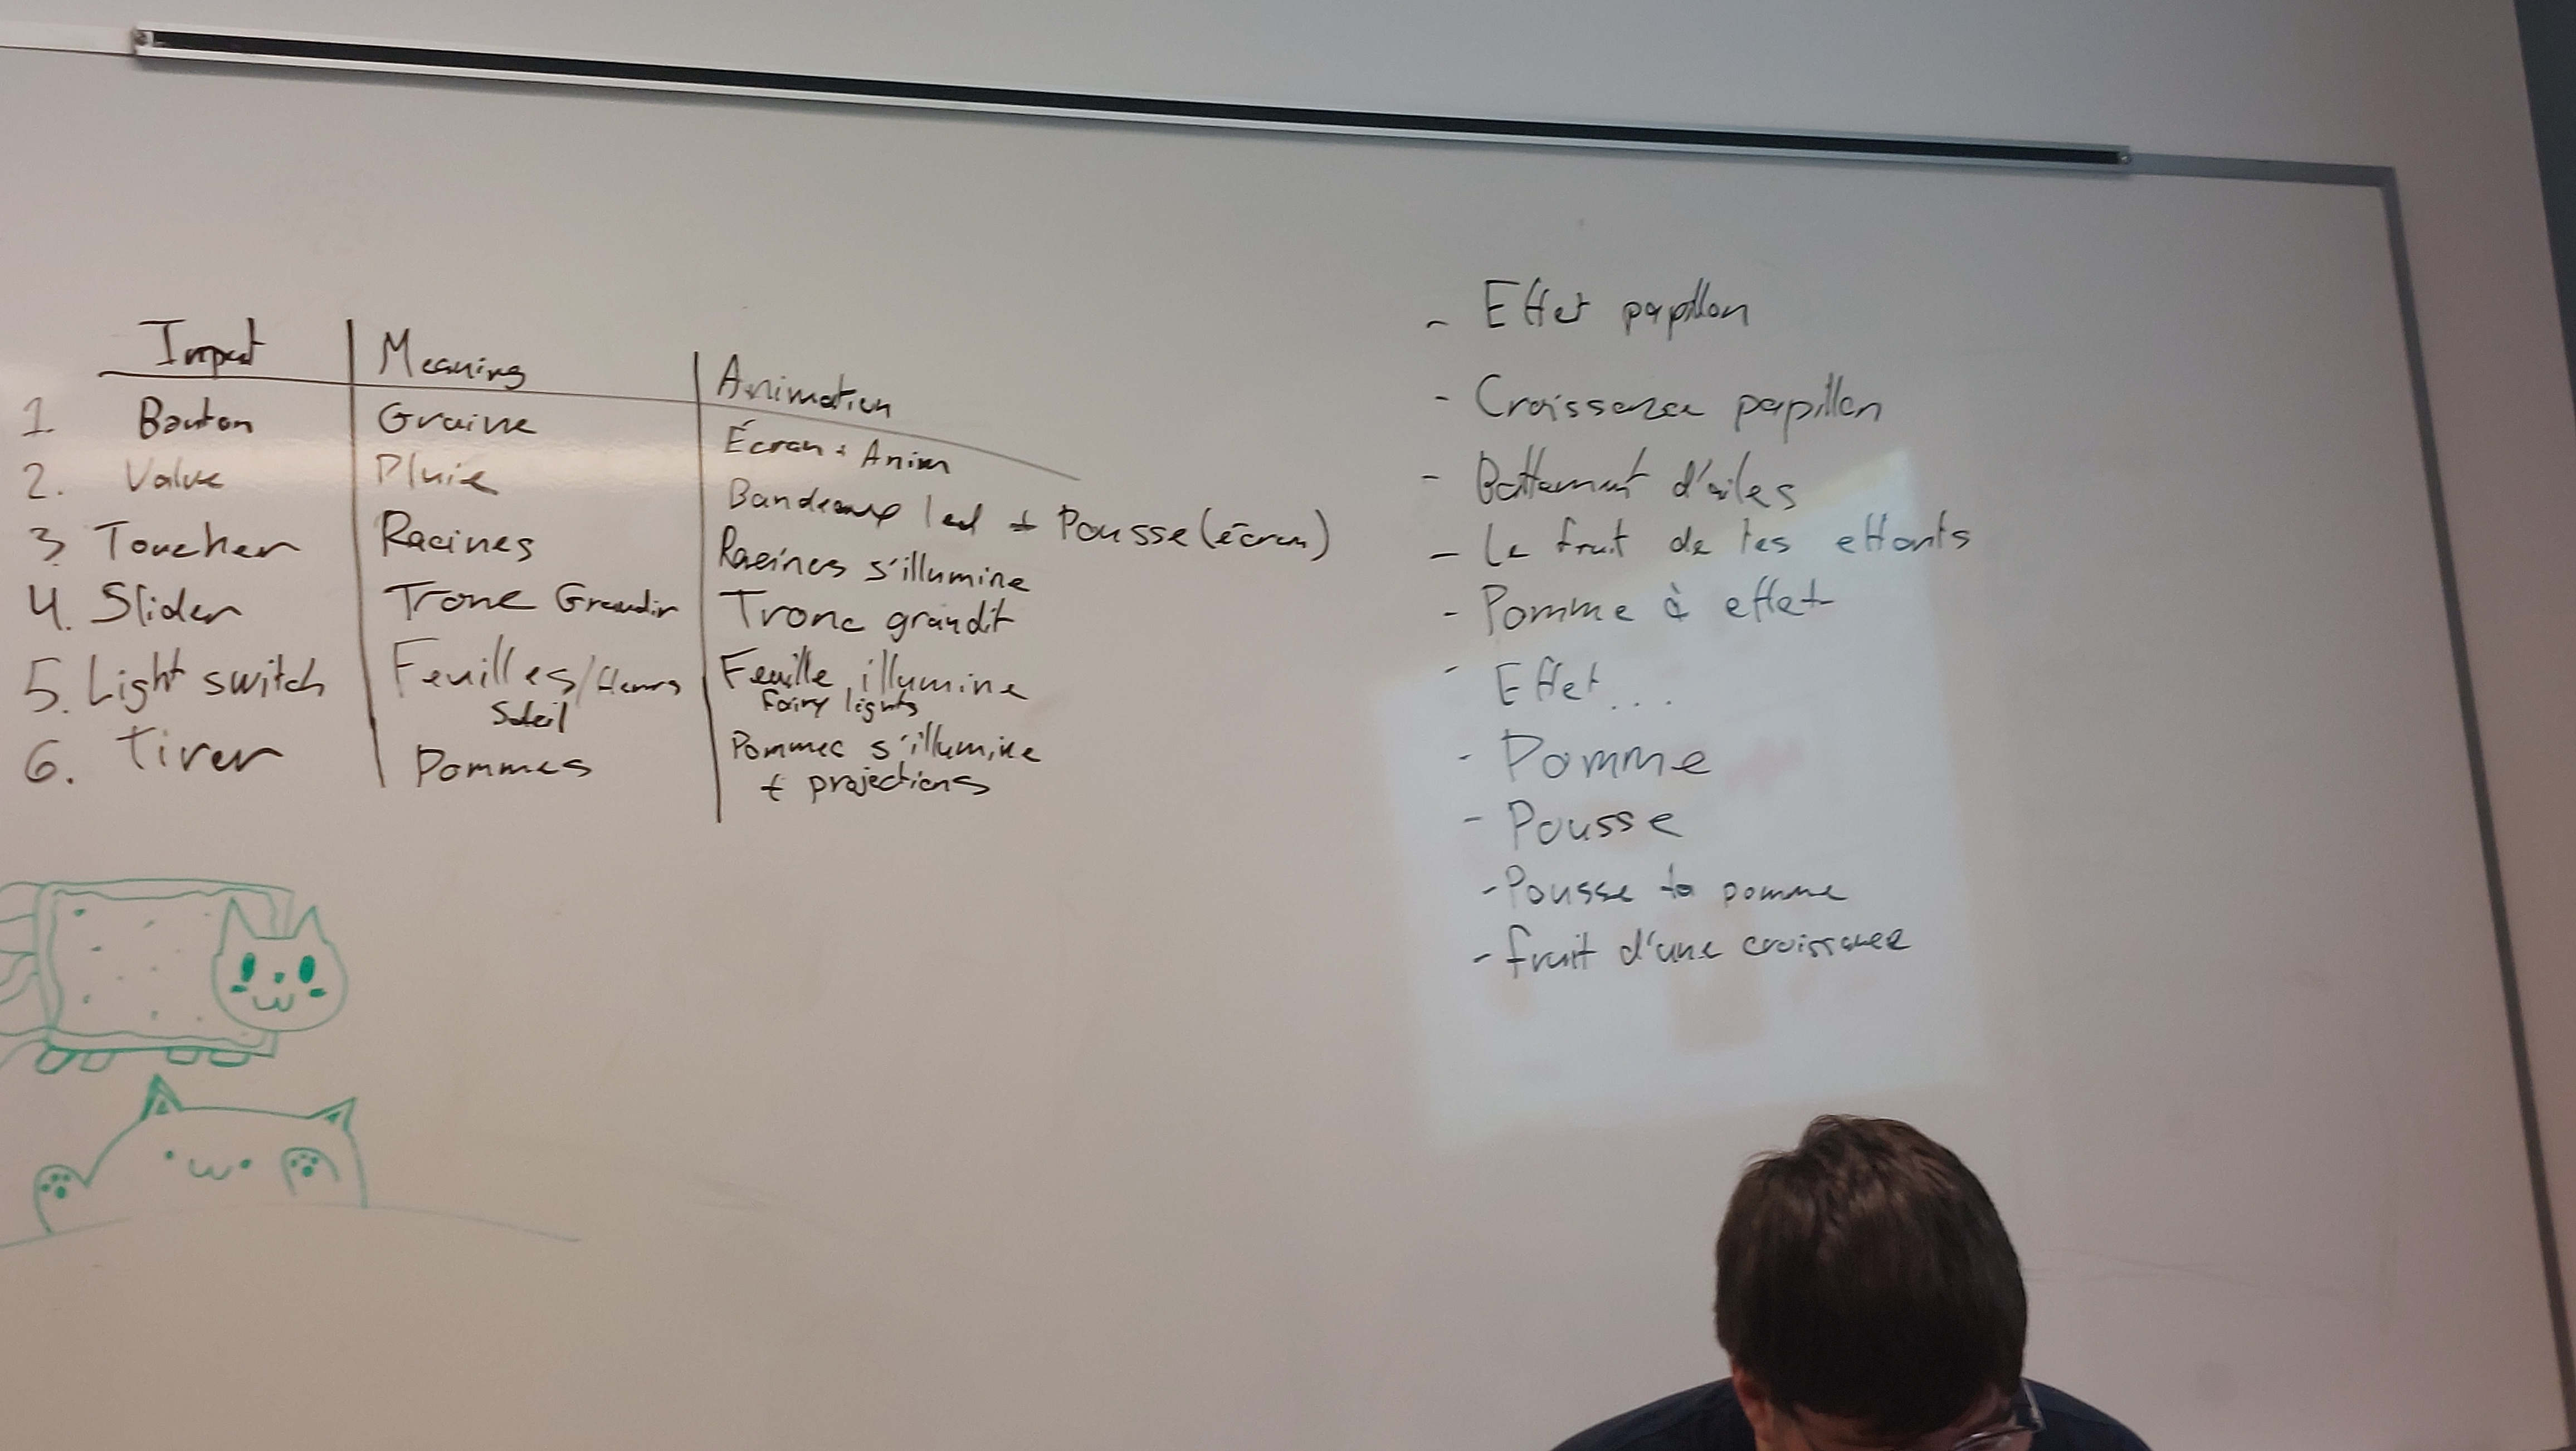 Input Meaning Animation
1. Bouton Graine Écran + Anim
2. Valve Pluie Bandeaux led + Pousse (écran)
3. Toucher Racines Racines s'illumine
4. Slider Tronc Grandir Tronc grandit
5. Light switch Feuilles/fleurs Feuille illumine
Soleil Fairy lights
6. Tirer Pommes Pommes s'illumine
+ projections
- Effet papillon
- Croissance papillon
- Battement d'ailes
- Le fruit de tes efforts
- Pomme à effet
- Effet...
- Pomme
- Pousse
- Pousse ta pomme
- fruit d'une croissance